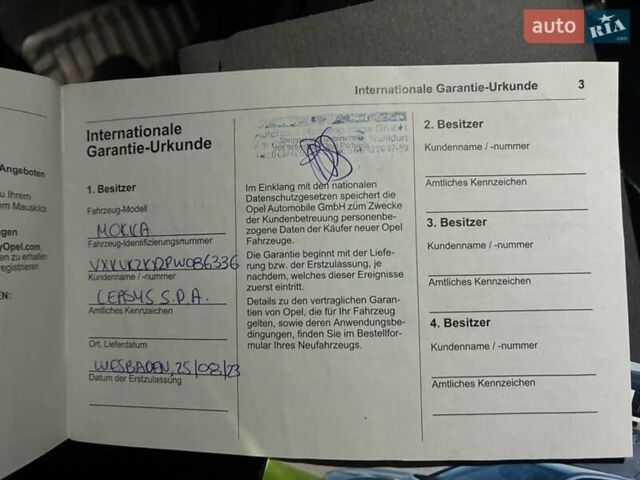 auto RIA.com
Internationale Garantie-Urkunde 3
Angeboten
zu Ihrem
em Mausklick
ngen
yOpel.com
en zu erhalten
registrieren
EN:
Internationale
Garantie-Urkunde
1. Besitzer
Fahrzeug-Modell
MOKKA
Fahrzeug-Identifizierungsnummer
Kundenname / -nummer
LEASYS S.P.A.
Amtliches Kennzeichen
Ort, Lieferdatum
WIESBADEN, 25/08/23
Datum der Erstzulassung
Im Einklang mit den nationalen
Datenschutzgesetzen speichert die
Opel Automobile GmbH zum Zwecke
der Kundenbetreuung personenbe-
zogene Daten der Käufer neuer Opel
Fahrzeuge.
Die Garantie beginnt mit der Liefe-
rung bzw. der Erstzulassung, je
nachdem, welches dieser Ereignisse
zuerst eintritt.
Details zu den vertraglichen Garan-
tien von Opel, die für Ihr Fahrzeug
gelten, sowie deren Anwendungsbe-
dingungen, finden Sie im Bestellfor-
mular Ihres Neufahrzeugs.
2. Besitzer
Kundenname / -nummer
Amtliches Kennzeichen
3. Besitzer
Kundenname / -nummer
Amtliches Kennzeichen
4. Besitzer
Kundenname / -nummer
Amtliches Kennzeichen